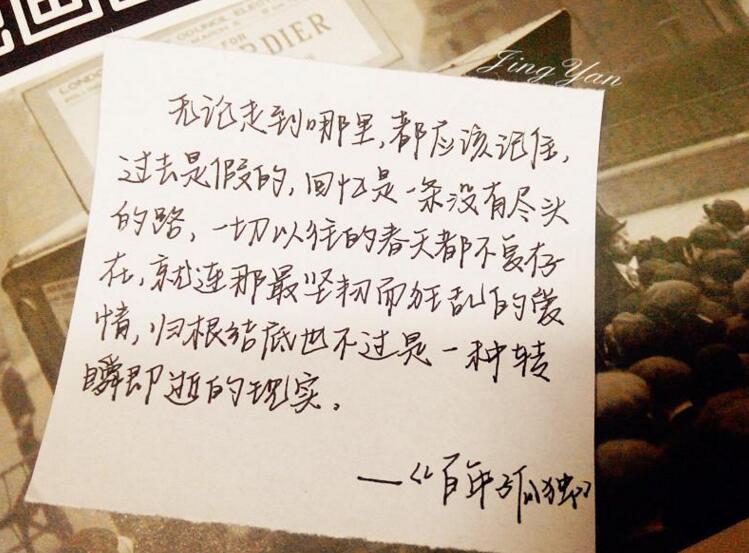 LONDON COUNCIL ELECT
FOR
RDIER
Jing Yan
无论走到哪里,都应该记住,
过去是假的,回忆是一条没有尽头
的路,一切以往的春天都不复存
在,就连那最坚韧而狂乱的爱
情,归根结底也不过是一种转
瞬即逝的现实。
——《百年孤独》